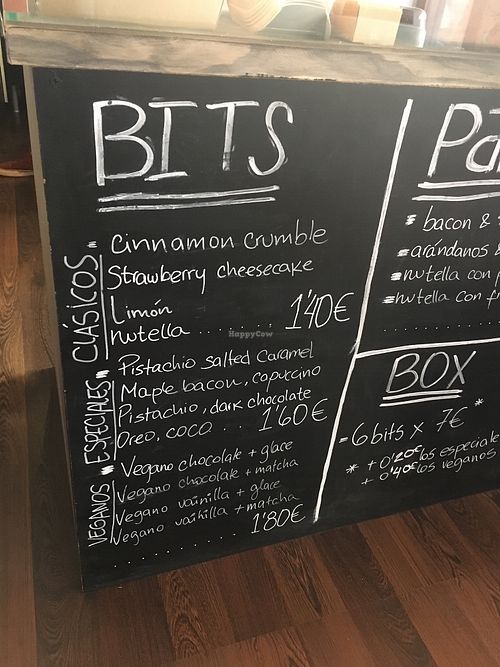 BITS
CLÁSICOS
Cinnamon Crumble
Strawberry cheesecake
Limón
nutella ........ 1'40€
ESPECIALES
Pistachio salted caramel
Maple bacon, capuccino
Pistachio, dark chocolate
Oreo, coco ... 1'60€
VEGANOS
Vegano chocolate + glace
Vegano chocolate + matcha
Vegano vainilla + glace
Vegano vainilla + matcha
1'80€
bacon &
arándanos
nutella con
nutella con
BOX
- 6 bits x 7€ *
* + 0'20€ los especiale
+ 0'40€ los veganos
HappyCow